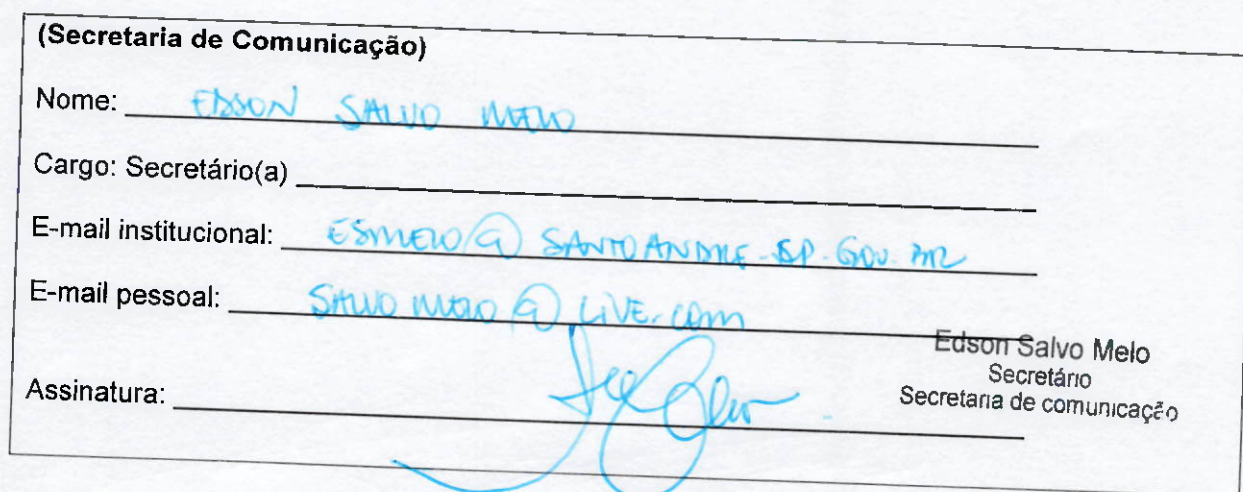 (Secretaria de Comunicação)
Nome: EDSON SALVO MELO
Cargo: Secretário(a)
E-mail institucional: ESMELO@SANTOANDRE.SP.GOV.BR
E-mail pessoal: SALVOMELO@LIVE.COM
Edson Salvo Melo
Secretário
Secretaria de comunicação
Assinatura: